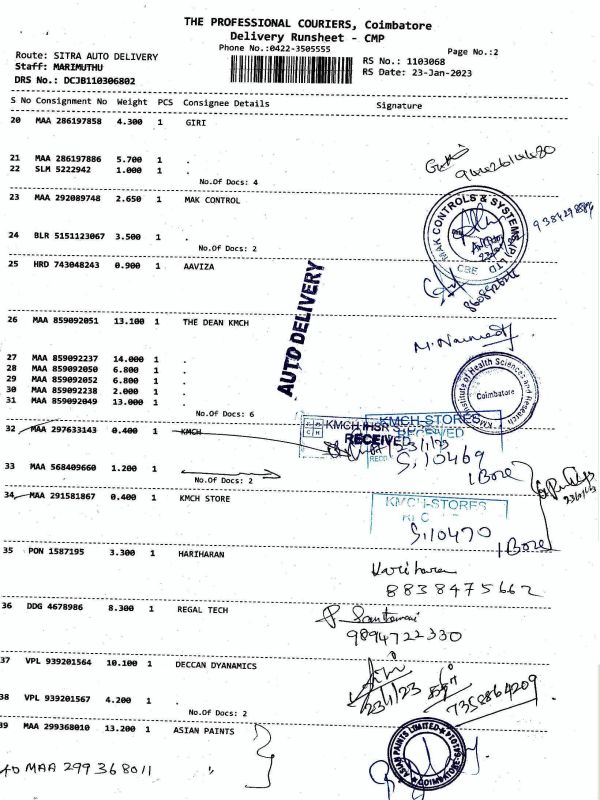 THE PROFESSIONAL COURIERS, Coimbatore
Delivery Runsheet - CMP
Phone No.:0422-3505555
Page No.:2
Route: SITRA AUTO DELIVERY
Staff: MARIMUTHU
DRS No.: DCJB110306802
RS No.: 1103068
RS Date: 23-Jan-2023
S No Consignment No Weight PCS Consignee Details Signature
20 MAA 286197858 4.300 1 GIRI
21 MAA 286197886 5.700 1 .
22 SLM 5222942 1.000 1 .
No.Of Docs: 4
23 MAA 292089748 2.650 1 MAK CONTROL
MAK CONTROLS & SYSTEMS (P) LTD
CBE
24 BLR 5151123067 3.500 1 .
No.Of Docs: 2
25 HRD 743048243 0.900 1 AAVIZA
AUTO DELIVERY
26 MAA 859092051 13.100 1 THE DEAN KMCH
27 MAA 859092237 14.000 1 .
28 MAA 859092050 6.800 1 .
29 MAA 859092052 6.800 1 .
30 MAA 859092238 2.000 1 .
31 MAA 859092049 13.000 1 .
No.Of Docs: 6
KMCH Institute of Health Sciences and Research
Coimbatore
32 MAA 297633143 0.400 1 KMCH
RECEIVED
KMCH-STORES
RECEIVED
S:10469
1 Box
33 MAA 568409660 1.200 1 .
No.Of Docs: 2
34 MAA 291581867 0.400 1 KMCH STORE
KMCH-STORES
S:10470
1 Box
35 PON 1587195 3.300 1 HARIHARAN
Hariharan
8838475662
36 DDG 4678986 8.300 1 REGAL TECH
9894722330
37 VPL 939201564 10.100 1 DECCAN DYANAMICS
23/1/23
7358864209
38 VPL 939201567 4.200 1 .
No.Of Docs: 2
39 MAA 299368010 13.200 1 ASIAN PAINTS
ASIAN PAINTS LIMITED
COIMBATORE
40 MAA 299368011 "